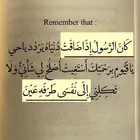 Remember that :
كَانَ الرَّسُولُ إِذَا ضَاقَتْ دُنْيَاهُ يُرَدِّد يا حي
يا قَيُّوم بِرَحْمَتِكَ أَسْتَغِيثُ أَصْلِحْ لِي شَأْنِي وَلَا
تَكِلْنِي إِلَى نَفْسِي طَرْفَةَ عَيْن